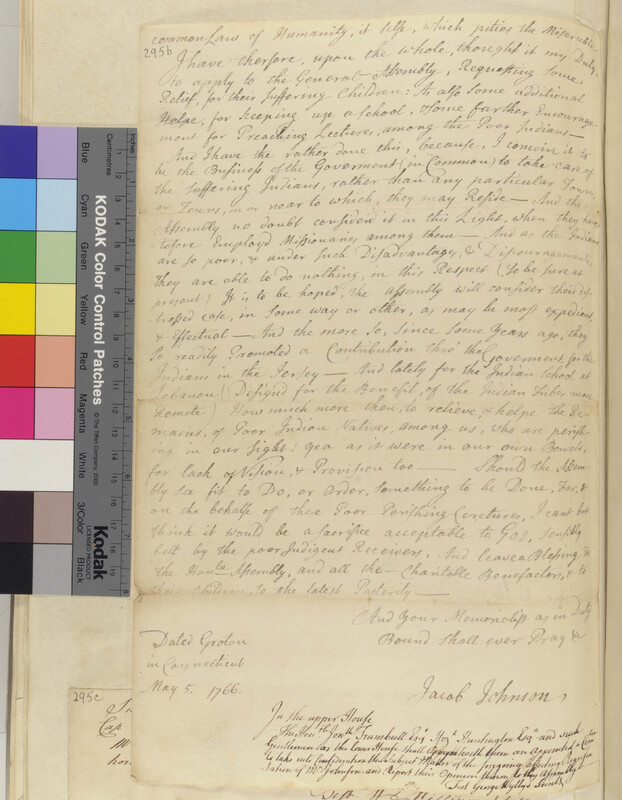 common Law of Humanity, it self, which pities the Miserable.
295b
I have therfore, upon the whole, thought it my Duty,
to apply to the General Assembly, Requesting Some
Relief, for their Suffering Children: As also Some additional
Helpe, for Keeping up a School, & Some farther Encourage
ment for Preaching Lectures, among the Poor Indians—
And I have the rather done this, because, I conceive it to
be the Business of the Goverment (in Common) to take care of
the Suffering Indians, rather than any particular Town,
or Towns, in or near to which, they may Reside— And the
Assembly no doubt considerd it in this Light, when they have
tofore Employd Missionaries among them— And as the Indians
are so poor, & under Such Disadvantages, & Discouragements,
they are able to do nothing, in this Respect (to be sure at
present) It is to be hoped, the Assembly will consider their dis-
tressed case, in Some way or other, as may be most expedient,
& Effectual— And the more So, Since Some Years ago, they
So readily Promoted a Contribution thro' the Goverment for the
Indians in the Jersey— And lately for the Indian School at
Lebanon (Designd for the Benefit, of the Indian Tribes more
Remote) How much more then, to relieve, & helpe the Re-
mains, of Poor Indian Natives, among us, who are perish-
ing in our Sight! yea as it were in our own Bowels,
for lack of Vision, & Provision too— Should the Assem-
bly See fit to Do, or order, Something to be Done, For, &
on the behalf of these Poor Perishing Cretures, I cant but
think it would be a Sacrifice acceptable to God, sensibly
felt by the poor Indigent Receivers, And leave a Blessing to
the Honle Assembly, and all the Charitable Benefactors, & to
their Children, to the latest Posterity—
And Your Memorialist as in Duty
Bound Shall ever Pray &c
Dated Groton
in Connecticut
May 5. 1766.
Jacob Johnson
295c
In the upper House
The Honle Jonth Trumbull Esqr Huntington Esqr and such
Gentlemen as the lower House shall with them are appointed a Com
to take into Consideration the subject Matter of the foregoing
of Mr Johnson and Report their Opinion thereon to this Assembly
Test George Wyllys Secrety
KODAK Color Control Patches
© The Tiffen Company, 2000
Kodak
LICENSED PRODUCT
Centimetres
Inches
Blue
Cyan
Green
Yellow
Red
Magenta
White
3/Color
Black
1
2
3
4
5
6
7
8
9
10
11
12
13
14
15
16
17
18
19
1
2
3
4
5
6
7
8